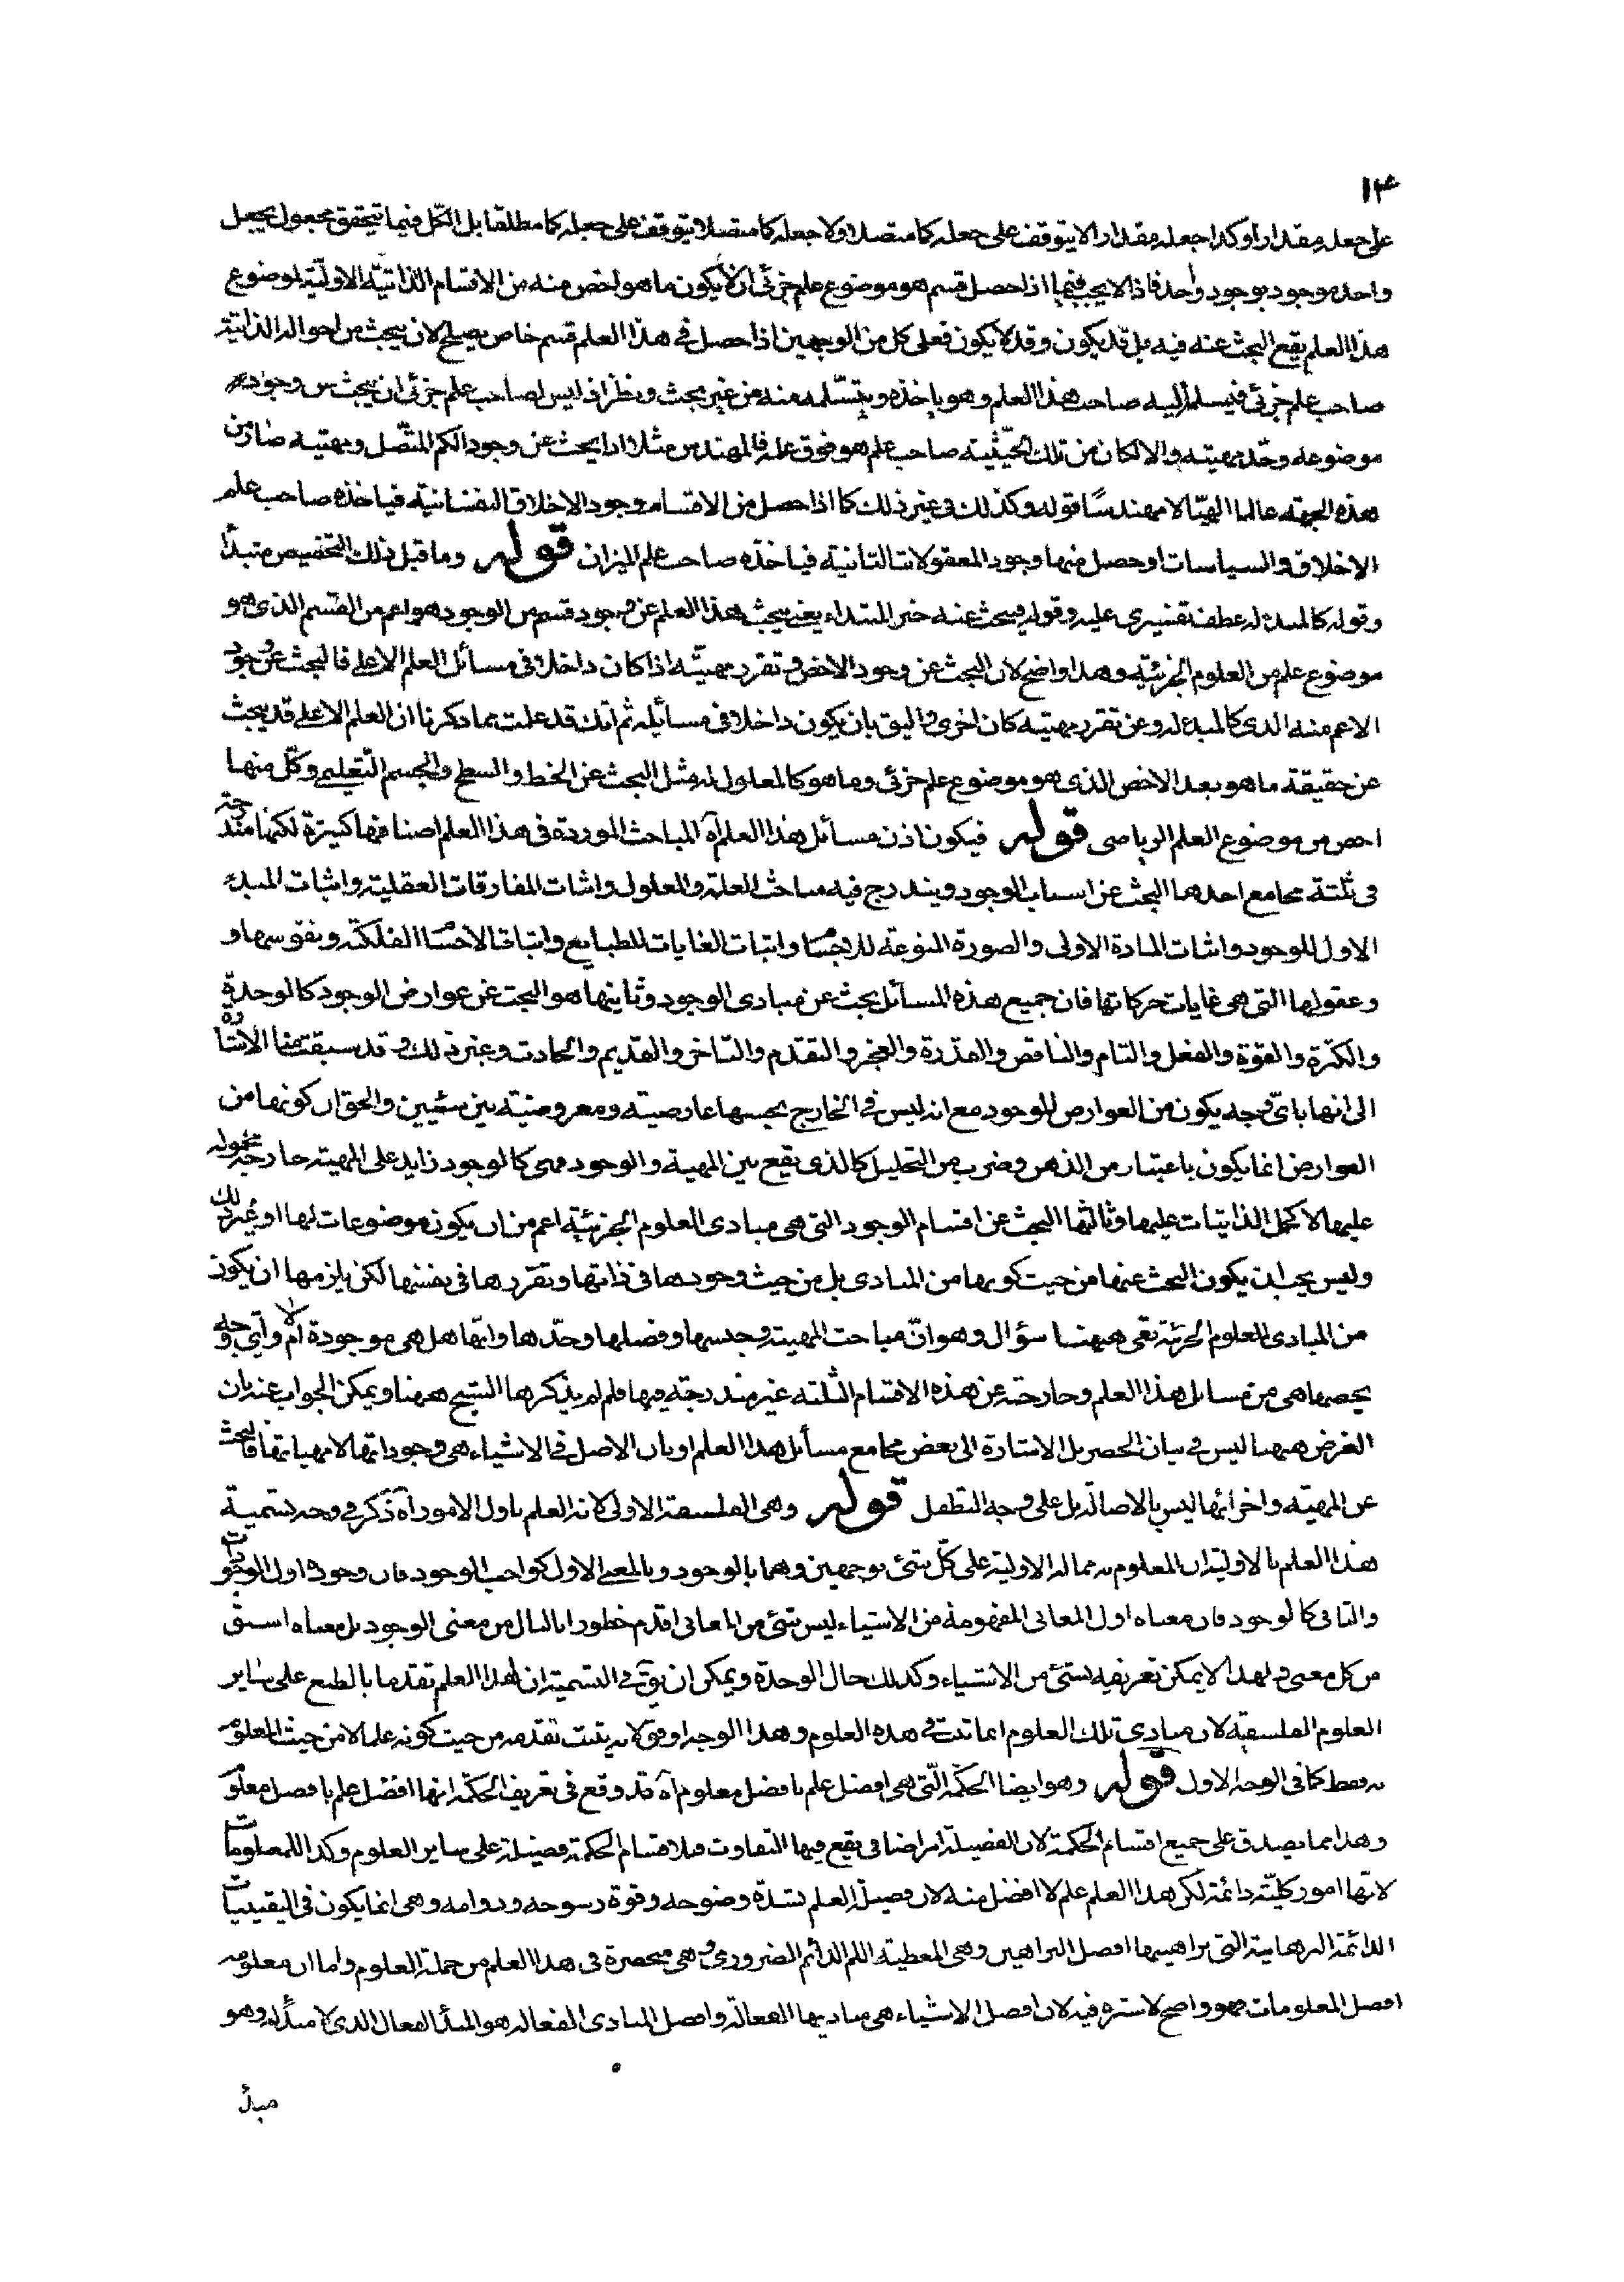 ١٤
على جعله مقدارا وكذا جعله مقدارا لا يتوقف على جعله كما متصلا ولا جعله كما متصلا يتوقف على جعله كما مطلقا بل الكل فيما يتحقق مجعول بجعل
واحد موجود بوجود واحد فاذا لا يجب فيما اذا حصل قسم هو موضوع علم جزئى ان لا يكون ما هو اخص منه من الاقسام الذاتية الاولية لموضوع
هذا العلم يقع البحث عنه فيه بل قد يكون وقد لا يكون فعلى كل من الوجهين اذا حصل فى هذا العلم قسم خاص يصلح لان يبحث من احواله الذاتية
صاحب علم جزئى فيسلم اليه صاحب هذا العلم وهو ياخذه ويتسلمه منه من غير بحث ونظر اذ ليس لصاحب علم جزئى ان يبحث من وجود
موضوعه وحد مهيته والا لكان من تلك الحيثية صاحب علم هو فوق علمه فالمهندس مثلا اذا بحث عن وجود الكم المتصل ومهيته صار من
هذه الجهة عالما الهيا لا مهندسا قوله وكذلك فى غير ذلك كما اذا حصل من الاقسام وجود الاخلاق النفسانية فياخذه صاحب علم
الاخلاق والسياسات او حصل منها وجود المعقولات الثانية فياخذه صاحب علم الميزان قوله وما قبل ذلك التخصيص مبتدأ
وقوله كالمبدء له عطف تفسيرى عليه وقوله فيبحث عنه خبر المبتداء يعنى يبحث هذا العلم عن وجود قسم من الوجود هو اعم من القسم الذى هو
موضوع علم من العلوم الجزئية وهذا واضح لان البحث عن وجود الاخص وتقرر مهيته اذا كان داخلا فى مسائل العلم الاعلى فالبحث عن وجود
الاعم منه الذى كالمبدء له وعن تقرر مهيته كان احرى واليق بان يكون داخلا فى مسائله ثم انك قد علمت مما ذكرنا ان العلم الاعلى قد يبحث
عن حقيقة ما هو بعد الاخص الذى هو موضوع علم جزئى وما هو كالمعلول له مثل البحث عن الخط والسطح والجسم التعليمى وكل منها
اخص من موضوع العلم الرياضى قوله فيكون اذن مسائل هذا العلم آه المباحث الموردة فى هذا العلم اصنافها كثيرة لكنها مندرجة
فى ثلثة مجامع احدها البحث عن اسباب الوجود ويندرج فيه مباحث العلة والمعلول واثبات المفارقات العقلية واثبات المبدء
الاول للوجود واثبات المادة الاولى والصورة النوعية للاجسام واثبات الغايات للطبايع واثبات الاجسام الفلكية ونفوسها و
وعقولها التى هى غايات حركاتها فان جميع هذه المسائل بحث عن مبادى الوجود وثانيها هو البحث عن عوارض الوجود كالوحدة
والكثرة والقوة والفعل والتام والناقص والقدرة والعجز والتقدم والتاخر والقديم والحادث وغير ذلك وقد سبقت منا الاشارة
الى انها باى وجه يكون من العوارض للوجود مع انه ليس فى الخارج بحسبها عارضية ومعروضية بين شيئين والحق ان كونها من
العوارض انما يكون باعتبار من الذهن وضرب من التحليل كالذى يقع بين المهية والوجود فهى كالوجود زايد على المهية خارجة محمولة
عليها لا كحمل الذاتيات عليها وثالثها البحث عن اقسام الوجود التى هى مبادى العلوم الجزئية اعم من ان يكون موضوعات لها او غير ذلك
وليس يجب ان يكون البحث عنها من حيث كونها من المبادى بل من حيث وجودها فى ذاتها وتقررها فى نفسها لكن يلزمها ان يكون
من المبادى للعلوم الجزئية بقى ههنا سؤال وهو ان مباحث المهية وجنسها وفصلها وحدها وانها هل هى موجودة ام لا وباى وجه
يخصها هى من مسائل هذا العلم وخارجة عن هذه الاقسام الثلثة غير مندرجة فيها فلم لم يذكرها الشيخ ههنا ويمكن الجواب عنه بان
الغرض ههنا ليس فى بيان الحصر بل الاشارة الى بعض مجامع مسائل هذا العلم او بان الاصل فى الاشياء هى وجوداتها لا مهياتها فالبحث
عن المهية واجزائها ليس بالاصالة بل على وجه التطفل قوله وهى الفلسفة الاولى لانه العلم باول الامور آه ذكر فى وجه تسمية
هذا العلم بالاولية ان المعلوم به مما له الاولية على كل شئ بوجهين وهما بالوجود وبالمعنى الاول كواجب الوجود فان وجوده اول الوجودات
والثانى كالوجود فان معناه اول المعانى المفهومة من الاشياء ليس شئ من المعانى اقدم خطورا بالبال من معنى الوجود بل معناه اسبق
من كل معنى ولهذا لا يمكن تعريفه بشئ من الاشياء وكذلك حال الوحدة ويمكن ان يق فى التسمية ان لهذا العلم تقدما بالطبع على ساير
العلوم الفلسفية لان مبادى تلك العلوم انما تثبت فى هذه العلوم وهذا الوجه اوفق لانه يثبت تقدمه من حيث كونه علما لا من حيث المعلوم
به فقط كما فى الوجه الاول قوله وهو ايضا الحكمة التى هى افضل علم بافضل معلوم آه قد وقع فى تعريف الحكمة انها افضل علم بافضل معلوم
وهذا مما يصدق على جميع اقسام الحكمة لان الفضيلة امر اضافى يقع فيها التفاوت فلاقسام الحكمة فضيلة على ساير العلوم وكذا المعلومات
لانها امور كلية دائمة لكن هذا العلم علم لا افضل منه لان فضيلة العلم بشدة وضوحه وقوة رسوخه ودوامه وهى انما يكون فى اليقينيات
الدائمة البرهانية التى براهينها افضل البراهين وهى المعطية اللم الدائم الضرورى وهى منحصرة فى هذا العلم من جملة العلوم واما ان معلومه
افضل المعلومات فهو واضح لا سترة فيه لان افضل الاشياء هى مباديها الفعالة وافضل المبادى الفعالة هو المبدأ الفعال الذى لا مبدأ له وهو
مبدأ